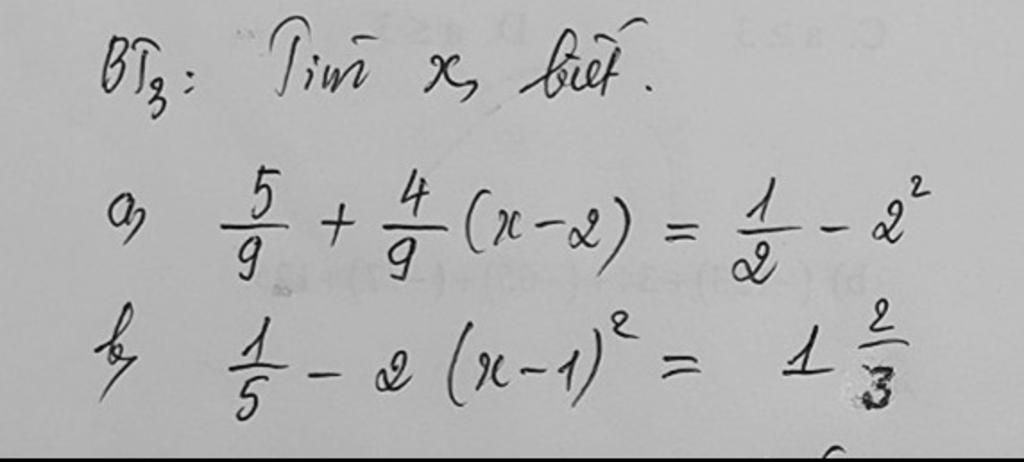 BT3: Tìm x, biết.
a, 5/9 + 4/9 (x - 2) = 1/2 - 2²
b, 1/5 - 2 (x - 1)² = 1 2/3